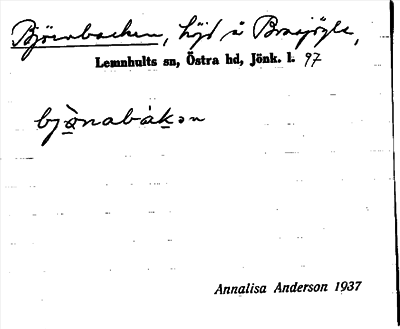 Björnbacken, höjd å
Lemnhults sn, Östra hd, Jönk. l. 97
bjò̱nabàḵən
Annalisa Anderson 1937